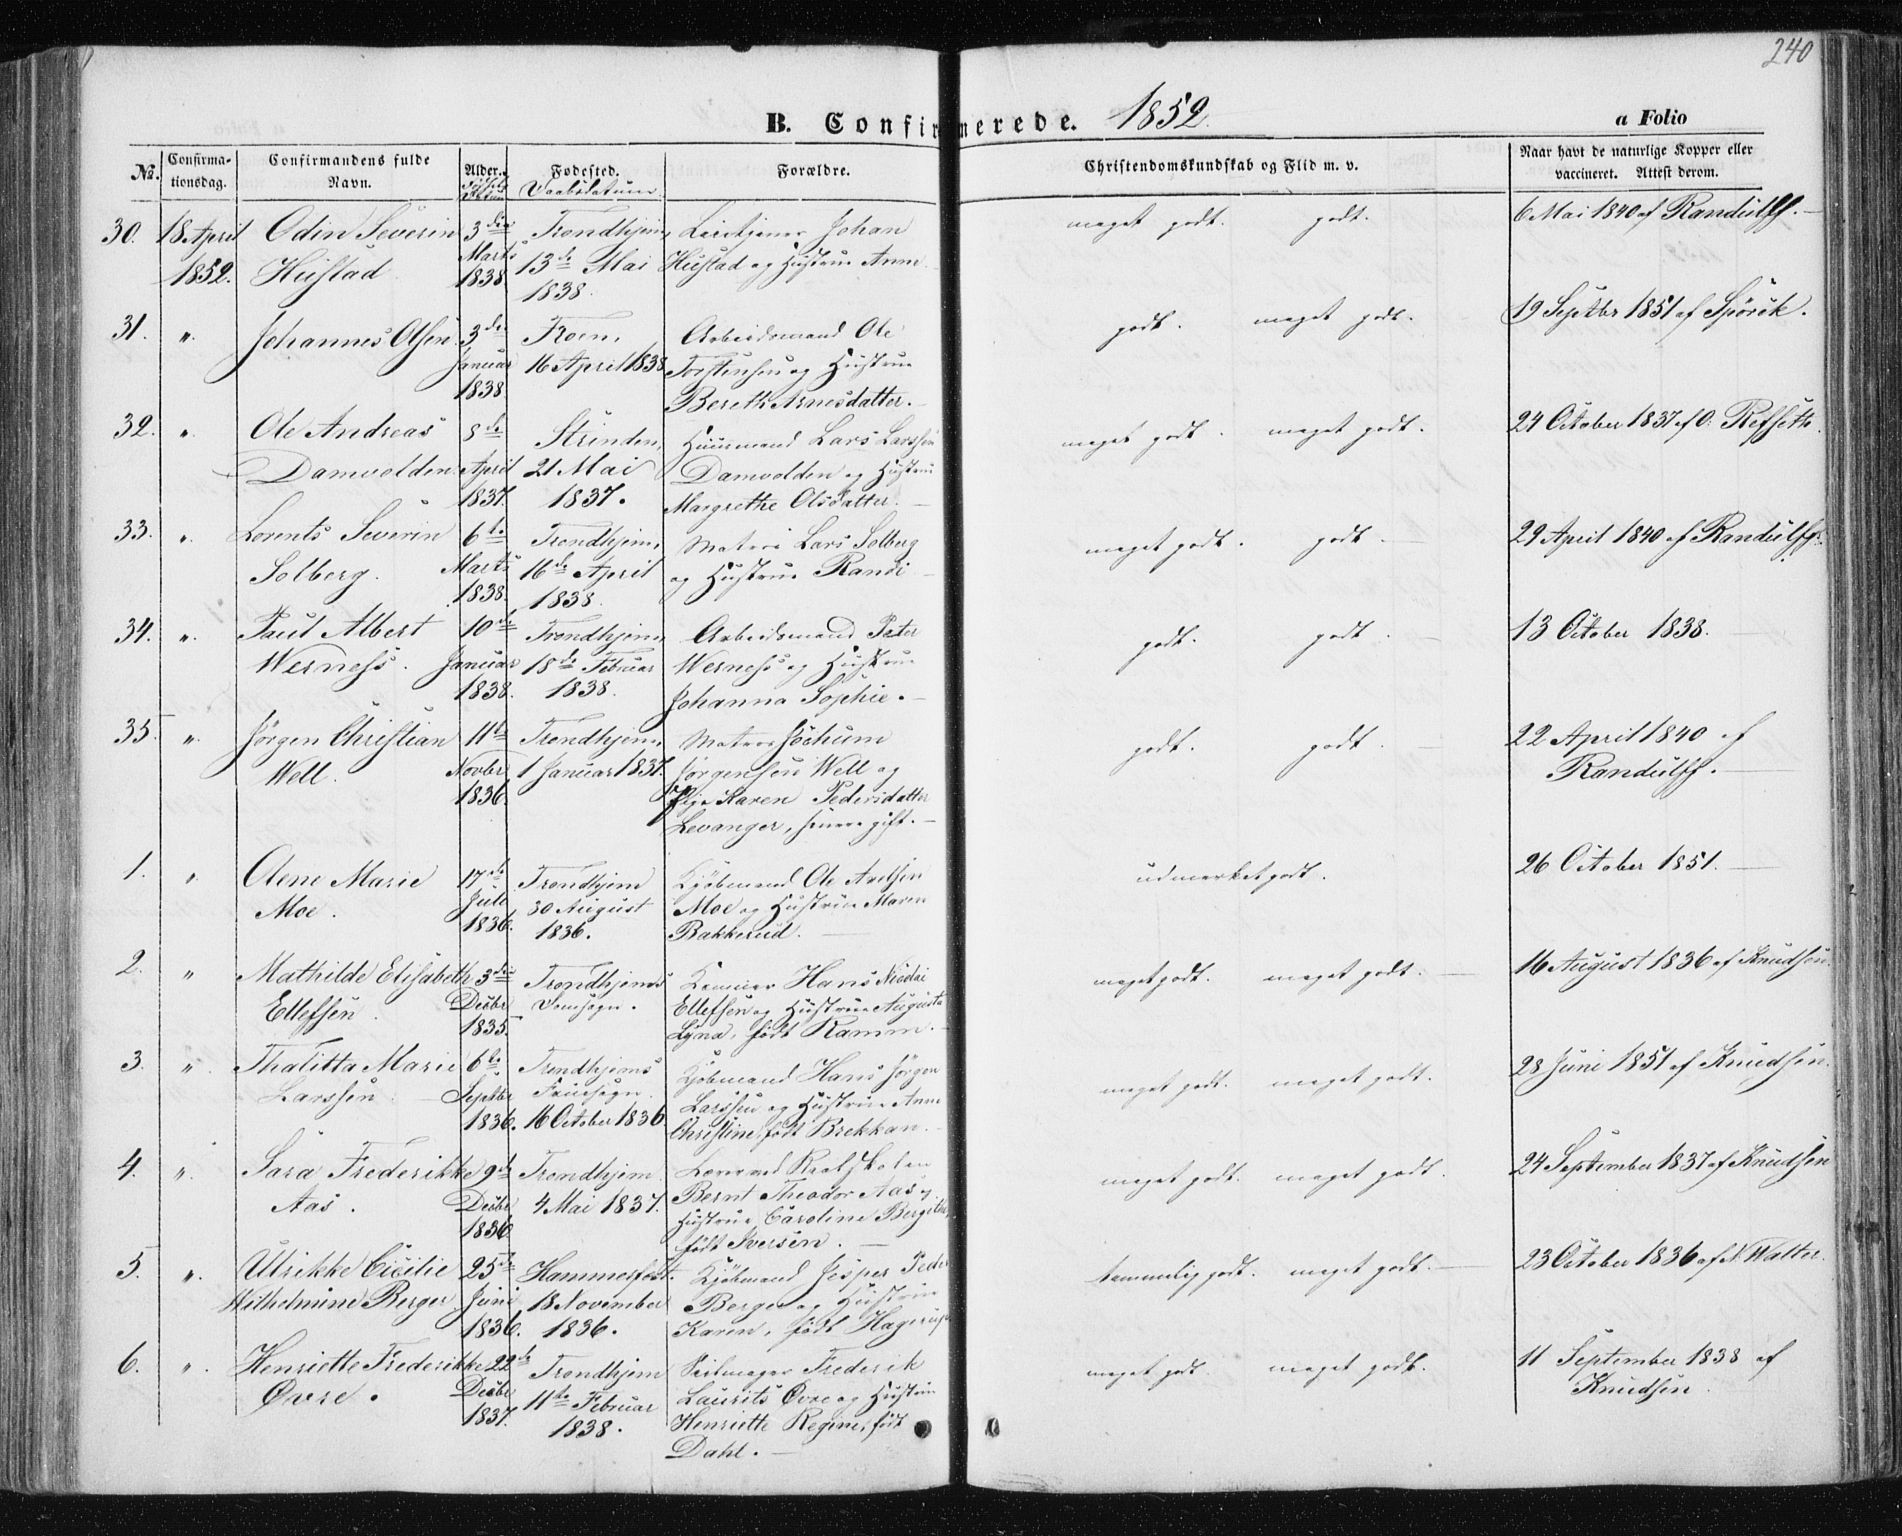 240
B. Confirmerede. 1852.
a Folio
No.
Confirmationsdag.
Confirmandens fulde Navn.
Alder.
Fødested. Daabsdatum.
Forældre.
Christendomskundskab og Flid m. v.
Naar havt de naturlige Kopper eller vaccineret. Attest derom.
30. 18 April 1852. Odin Severin Hustad. 3die Marts 1838 Trondhjem, 13de Mai 1838. Johan Hustad og Hustrue Anne. meget godt. godt. 6 Mai 1840 af Randulff.
31. „ Johannes Olsen 3de Januar 1838. 16 April 1838 Arbeidsmand Ole Torstensen og Hustrue Bereth Arnesdatter. godt. meget godt. 19 Septbr 1851 af Spørck.
32. „ Ole Andreas Damvolden 8de April 1837. Strinden, 21 Mai 1837. Huusmand Lars Larssen Damvolden og Hustrue Margrethe Olsdatter. meget godt. meget godt. 24 October 1837 af O. Refseth.
33. „ Lorents Severin Solberg. 6te Marts 1838. Trondhjem, 16de April 1838. Matros Lars Solberg og Hustrue Randi meget godt. godt. 29 April 1840 af Randulff.
34. „ Paul Albert Werness. 10de Januar 1838. Trondhjem, 18de Februar 1838. Arbeidsmand Peter Werness og Hustrue Johanna Sophie. godt. godt. 13 October 1838.
35. „ Jørgen Christian Well. 11te Novbr 1836. Trondhjem, 1 Januar 1837. Matros Jochum Jørgensen Well og Pige Karen Pedersdatter Levanger, senere gift. godt. godt. 22 April 1840 af Randulff.
1. „ Olene Marie Moe. 17de Juli 1836. Trondhjem 30 August 1836. Kjøbmand Ole Axelsen Moe og Hustrue Maren Bakkerud. udmærket godt. 26 October 1851.
2. „ Mathilde Elisabeth Ellefsen. 3die Decbr 1835. Trondhjems Domsogn. Hans Nicolai Ellefsen og Hustrue Augusta Lyna, født Ramm. meget godt. meget godt. 16 August 1836 af Knudsen.
3. „ Thalitta Marie Larssen. 6te Septbr 1836. Trondhjems Fruesogn. 16 October 1836 Kjøbmand Hans Jørgen Larssen og Hustrue Anne Christine, født Brekkan. meget godt. meget godt. 28 Juni 1851 af Knudsen.
4. „ Sara Frederikke Aas. 9de Decbr 1836. Trondhjem 4 Mai 1837. Lærer ved Realskolen Bernt Theodor Aas og Hustrue Caroline Bergitte, født Iversen. meget godt. meget godt. 24 September 1837 af Knudsen
5. „ Ulrikke Cicilie Wilhelmine Berger. 25de Juni 1836. Hammerfest. 18 November 1836. Kjøbmand Jesper Peder Berger og Hustrue Karen, født Hagerup. temmelig godt. meget godt. 23 October 1836 af N. Walter.
6. „ Henriette Frederikke Øvre. 22de Decbr 1837. Trondhjem 11te Februar 1838. Seilmager Frederik Laurits Øvre og Hustrue Henriette Regine, født Dahl. meget godt. meget godt. 11 September 1838 af Knudsen.